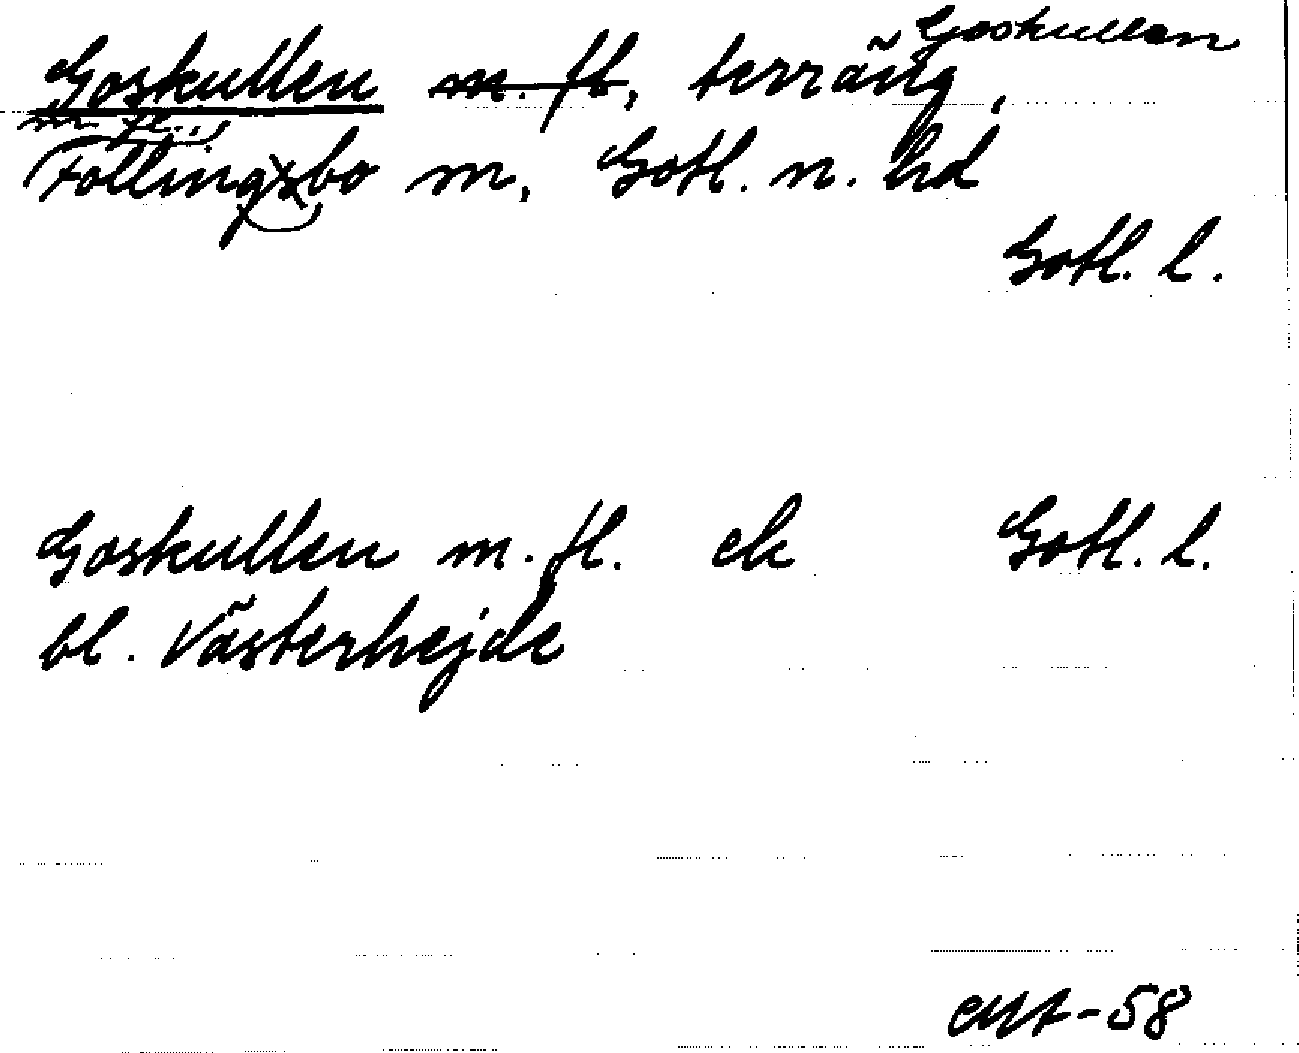 Goskullen
Goskullen m. fl., terräng,
m fl.,
Follingsbo m, Gotl. n. hd
Gotl. l.
Goskullen m. fl. ek Gotl. l.
bl. Västerhejde